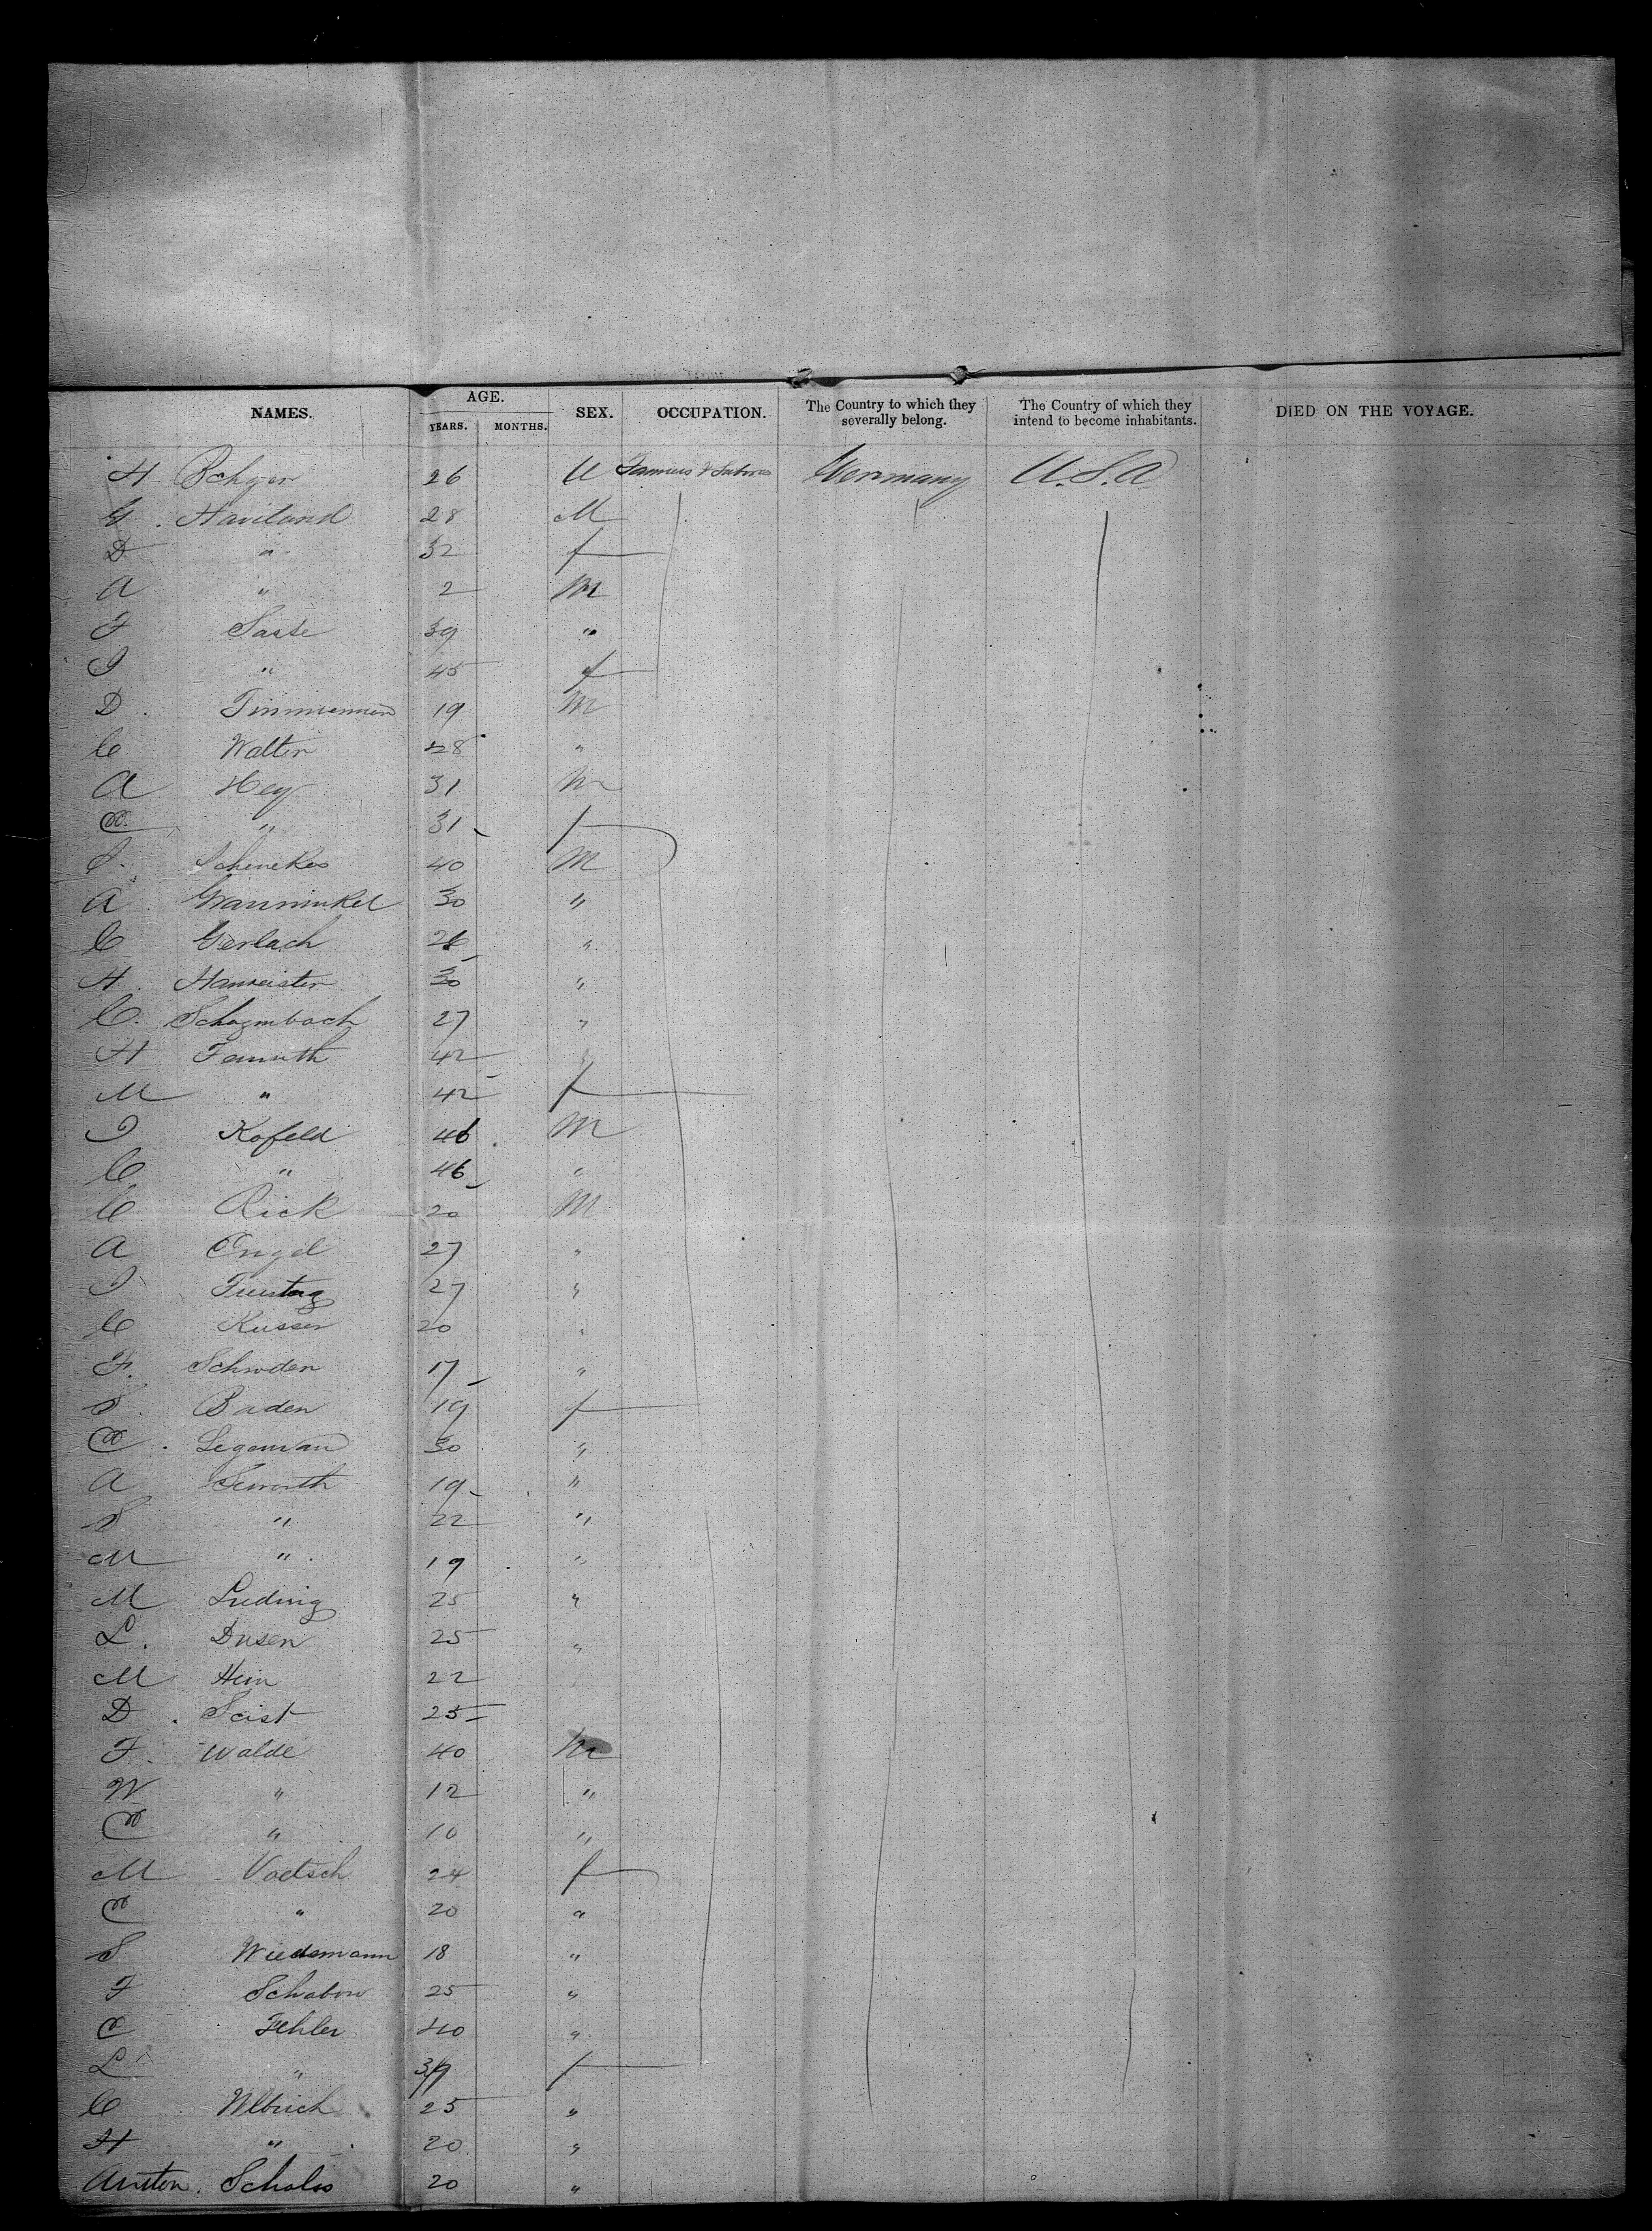 NAMES. AGE. YEARS. MONTHS. SEX. OCCUPATION. The Country to which they severally belong. The Country of which they intend to become inhabitants. DIED ON THE VOYAGE.
H 26 Germany U.S.A.
G. Haviland 28 M
D " 32 f
A " 2 M
F Saste 39 "
I " 45 f
D. Timmerman 19 M
C Walter 28 "
A Hey 31 M
C " 31 f
40 M
A 30 "
C Gerlach 26 "
H. 30 "
C. 27 "
H Famuth 42 "
M " 42 f
I Kofeld 46 M
C " 46 "
C Rick 20 M
A Engel 27 "
I Freitag 27 "
C Kusser 20 "
F. Schroden 17 "
S Baden 19 f
C. Legeman 30 "
A 19 "
S " 22 "
M " 19 "
M Ludwig 25 "
L. Dusen 25 "
M Hein 22
D. Scist 25
F. Walde 40 M
W " 12 "
C " 10 "
M Voetsch 24 f
C " 20 "
S Wiedemann 18 "
F Schabow 25 "
C Fehler 40 "
L " f
C Ulbrich 25 "
H " 20 "
Anton. Scholss 20 "